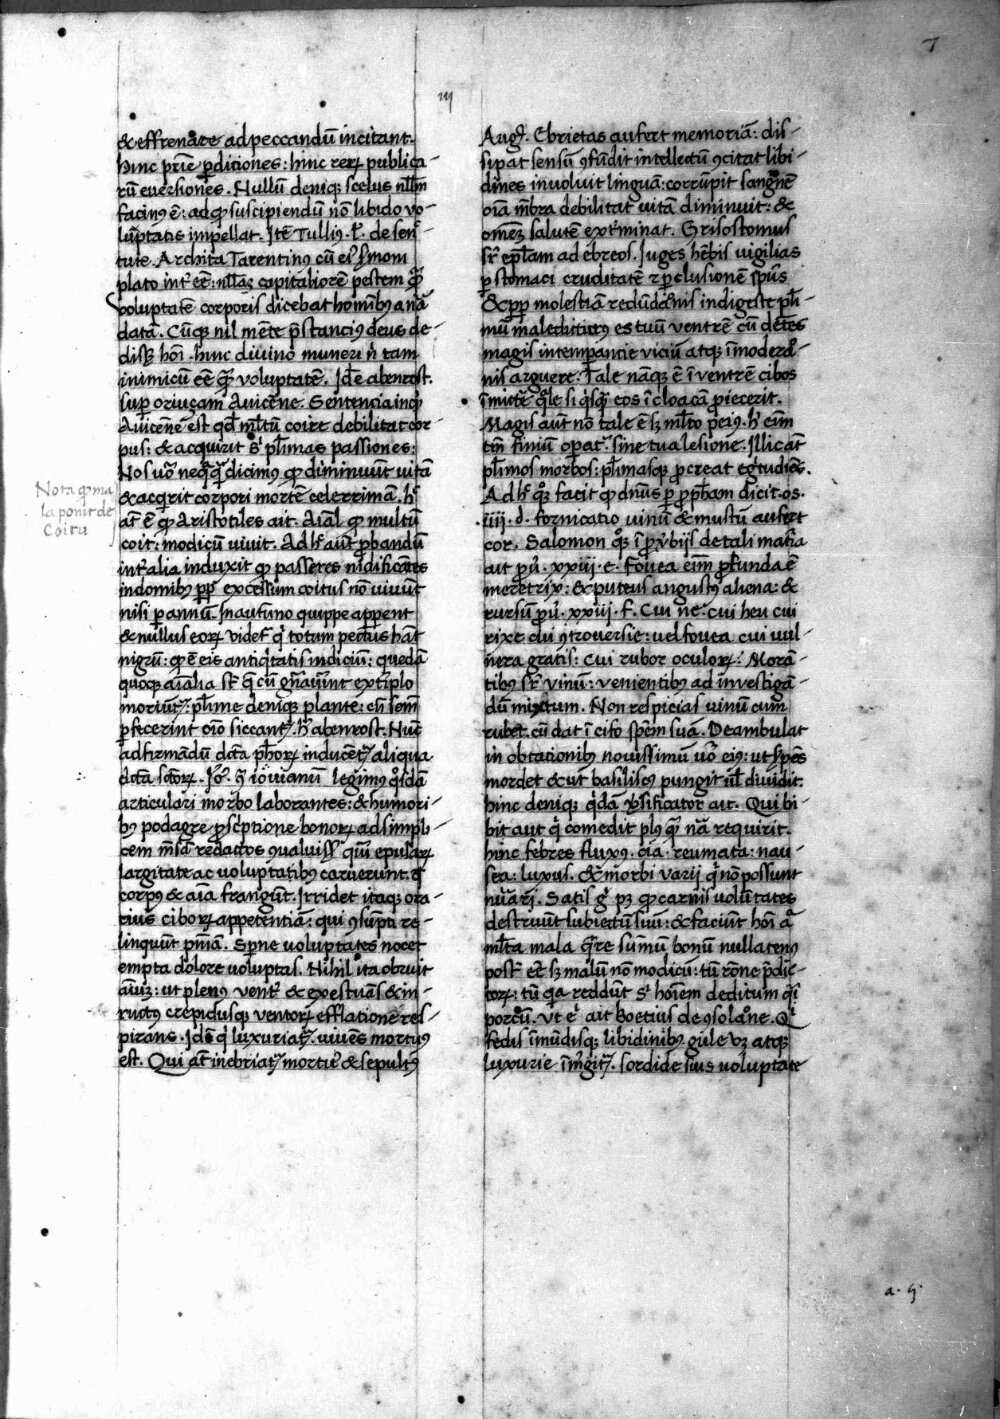 7
iij
& effrenate ad peccandū incitant.
hinc pr̄ie p̱diciones: hinc rerꝝ publica-
rū euersiones. Nullū deniqꝫ scelus nll̄m
facinꝰ ē: ad qᷓ suscipiendū nō libido vo-
lūptatis impellat. Itē Tulliꝰ. l'. de sen-
tute. Archita Tarentinꝰ cū eiꝰ s̄moni
plato int̉ eēt: nullaꝫ capitaliorē pestem qᷓ
voluptatē corporis dicebat hominibꝰ a nā
datā. Cūqꝫ nil mēte p̄stanciꝰ deus de-
disꝫ hōi. hinc diuino muneri nͥ tam
inimicū eēt qᷓ voluptatē. Idē abenrost.
sup̱ oriuçam Auicene. Sentencia inqͭ
Auicene est qd̄ ml̄tū coire debilitat cor
pus: & acquirit sͥ pl̄imas passiones:
Nos uͦo neqᷓqᷓ dicimꝰ qꝫ diminuunt uitā
& acqͥrit corpori mortē celerrimā. hͨ
at̄ ē qꝫ Aristotiles ait. Aīal qꝫ multū
coit: modicū uiuit. Ad hͨ aūt p̱bandū
int̉ alia induxit qꝫ passeres nidificātes
in domibꝰ pp̱ excessum coitus nō uiuūt
nisi p̱ annū. In autūno quippe apparent
& nullus eorꝝ uidet̉ qͥ totum pectus hāt
nigrū: qꝫ ē eis antiqͥtatis indiciū: quedā
quoqꝫ aīalia st̄ qͤ cū gn̄auerint extͥplo
moriūt̉. pl̄ime deniqꝫ plante: cū sem̄
p̱fecerint oīo siccant̉. hͨ abenrost. Nūc
ad firmandū dc̄ta ph̄orꝝ inducēt̉ aliqua
dc̄ta sc̄torꝝ. Jeͦ. ꝯ̄ iouianū legimꝰ qͦsdā
articulari morbo laborantes: & humori-
bꝰ podagre p̱scͥptione bonorꝝ ad simpli-
cem mēsā redactos ꝯualuisse qͥm̄ epularꝝ
largitate ac uoluptatibꝰ caruerunt. qͤ
corpꝰ & aīa frangūt. Irridet itaqꝫ ora-
tius ciborꝝ appetentiā: qui ꝯsūpti re-
linquūt pn̄iam. Sp̱ne uoluptates nocet
empta dolore uoluptas. Nihil ita obruit
aīuꝫ: ut plenꝰ uent̉ & exestuās & in-
ructꝰ crepidusqꝫ ventorꝝ efflatione res-
pirans. Idē qͥ luxuriat̉. uiuēs mortuꝰ
est. Qui at̄ inebriat̉ mortuꝰ & sepultꝰ
Nota qꝫ ma
la ponit de
Coitu
Aug̉. Ebrietas aufert memoriā: dis-
sipat sensū ꝯfūdit intellectū ꝯcitat libi-
dines inuoluit linguā: corrūpit sangnē
oīa mēbra debilitat uitā diminuit: &
omneꝫ salutē extͥminat. Grisostomus
sr̄ epl̄am ad ebreos. Iuges hēbis uigilias
p̱ stomaci cruditatē ⁊ p̱clusionē sp̄us
& pp̱ molestiā redūdātis indigestē pl̄i-
mū maledicturꝰ es tuū ventrē cū dētes
magis intemp̱antie viciū atqꝫ īmodera-
tiōis arguere. Tale nāqꝫ ē ī ventrē cibos
īmictͤe qͣle si qͥsqꝫ eos ī cloacā p̱iecerit.
Magis aūt nō tale ē sꝫ ml̄to peiꝰ. hͨ enim
tm̄ finiū opat̉. sine tua lesione. Illic at̄
pl̄imos morbos: pl̄imasqꝫ p̱creat egͥtudies.
Ad hͨ qͦqꝫ facit qꝫ dn̄us p̱ p̱ph̄am dicit. os.
.iiij. d. fornicatio uinū & mustū aufert
cor. Salomon qͦqꝫ ī p̱ūbijs de tali mat̄ia
ait p̱ū. xxiij. e. fouea enim p̱funda ē
meretrix: & puteus angustꝰ aliena: &
rursū p̱ū. xxiij. f. Cui ue. cui heu cui
rixe cui ꝯtrouersie: uel fouea cui uul-
nera gratis: cui rubor oculorꝝ: Morā-
tibꝰ sr̄ vinū: venientibꝰ ad inuestigā-
dū mixtum. Non respicias uinū cum
rubet. cū dat ī cifo spēm suā. Deambulat
in obtationibꝰ nouissimū uͦo eiꝰ: ut s̄pēs
mordet & ut basiliscꝰ pungit ul̄ diuidit.
hinc deniqꝫ qͥdā v̄sificator ait. Qui bi-
bit aut qͥ comedit plꝰ qᷓ nā requirit.
hinc febres fluxꝰ. oīa. reumata: nau-
sea: luxus. & morbi varij qͥ nō possunt
nūari. Satis gͦ pꝫ qꝫ carnis uolūtates
destruūt subiectū suū: & faciūt hōi aͣ
ml̄ta mala qͣre sūmū bonū nullatenꝰ
post̉ eē. sꝫ malū nō modicū: tū rōne p̱dic-
torꝝ: tū qͥa reddūt sͥ hoīem deditum qͣi
porcū. Ut eͥ ait boetius de ꝯsolaōne. Qͥ
fedis īmūdisqꝫ libidinibꝰ gule uꝫ atqꝫ
luxurie īmͥgit̉. sordide suis uoluptate